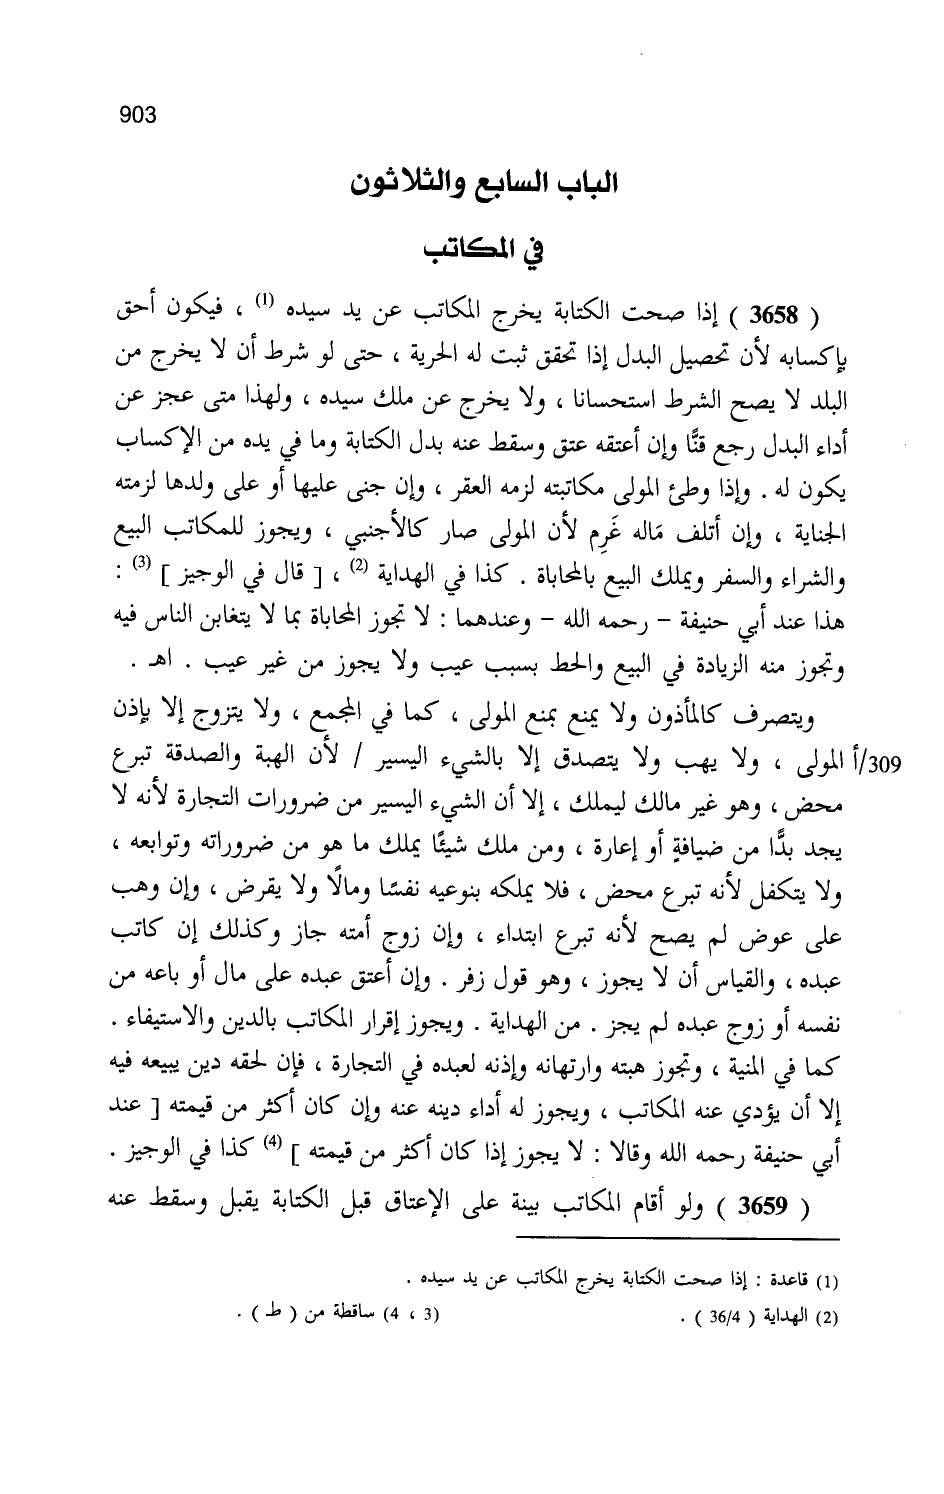 903
الباب السابع والثلاثون
في المكاتب
( 3658 ) إذا صحت الكتابة يخرج المكاتب عن يد سيده (1) ، فيكون أحق
بإكسابه لأن تحصيل البدل إذا تحقق ثبت له الحرية ، حتى لو شرط أن لا يخرج من
البلد لا يصح الشرط استحسانا ، ولا يخرج عن ملك سيده ، ولهذا متى عجز عن
أداء البدل رجع قنًّا وإن أعتقه عتق وسقط عنه بدل الكتابة وما في يده من الإكساب
يكون له . وإذا وطئ المولى مكاتبته لزمه العقر ، وإن جنى عليها أو على ولدها لزمته
الجناية ، وإن أتلف مَاله غَرِم لأن المولى صار كالأجنبي ، ويجوز للمكاتب البيع
والشراء والسفر ويملك البيع بالمحاباة . كذا في الهداية (2) ، [ قال في الوجيز ] (3) :
هذا عند أبي حنيفة – رحمه الله – وعندهما : لا تجوز المحاباة بما لا يتغابن الناس فيه
وتجوز منه الزيادة في البيع والحط بسبب عيب ولا يجوز من غير عيب . اهـ .
ويتصرف كالمأذون ولا يمنع بمنع المولى ، كما في المجمع ، ولا يتزوج إلا بإذن
309/أ المولى ، ولا يهب ولا يتصدق إلا بالشيء اليسير / لأن الهبة والصدقة تبرع
محض ، وهو غير مالك ليملك ، إلا أن الشيء اليسير من ضرورات التجارة لأنه لا
يجد بدًّا من ضيافةٍ أو إعارة ، ومن ملك شيئًا يملك ما هو من ضروراته وتوابعه ،
ولا يتكفل لأنه تبرع محض ، فلا يملكه بنوعيه نفسًا ومالًا ولا يقرض ، وإن وهب
على عوض لم يصح لأنه تبرع ابتداء ، وإن زوج أمته جاز وكذلك إن كاتب
عبده ، والقياس أن لا يجوز ، وهو قول زفر . وإن أعتق عبده على مال أو باعه من
نفسه أو زوج عبده لم يجز . من الهداية . ويجوز إقرار المكاتب بالدين والاستيفاء .
كما في المنية ، وتجوز هبته وارتهانه وإذنه لعبده في التجارة ، فإن لحقه دين يبيعه فيه
إلا أن يؤدي عنه المكاتب ، ويجوز له أداء دينه عنه وإن كان أكثر من قيمته [ عند
أبي حنيفة رحمه الله وقالا : لا يجوز إذا كان أكثر من قيمته ] (4) كذا في الوجيز .
( 3659 ) ولو أقام المكاتب بينة على الإعتاق قبل الكتابة يقبل وسقط عنه
(1) قاعدة : إذا صحت الكتابة يخرج المكاتب عن يد سيده .
(2) الهداية ( 36/4 ) . (3 ، 4) ساقطة من ( ط ) .